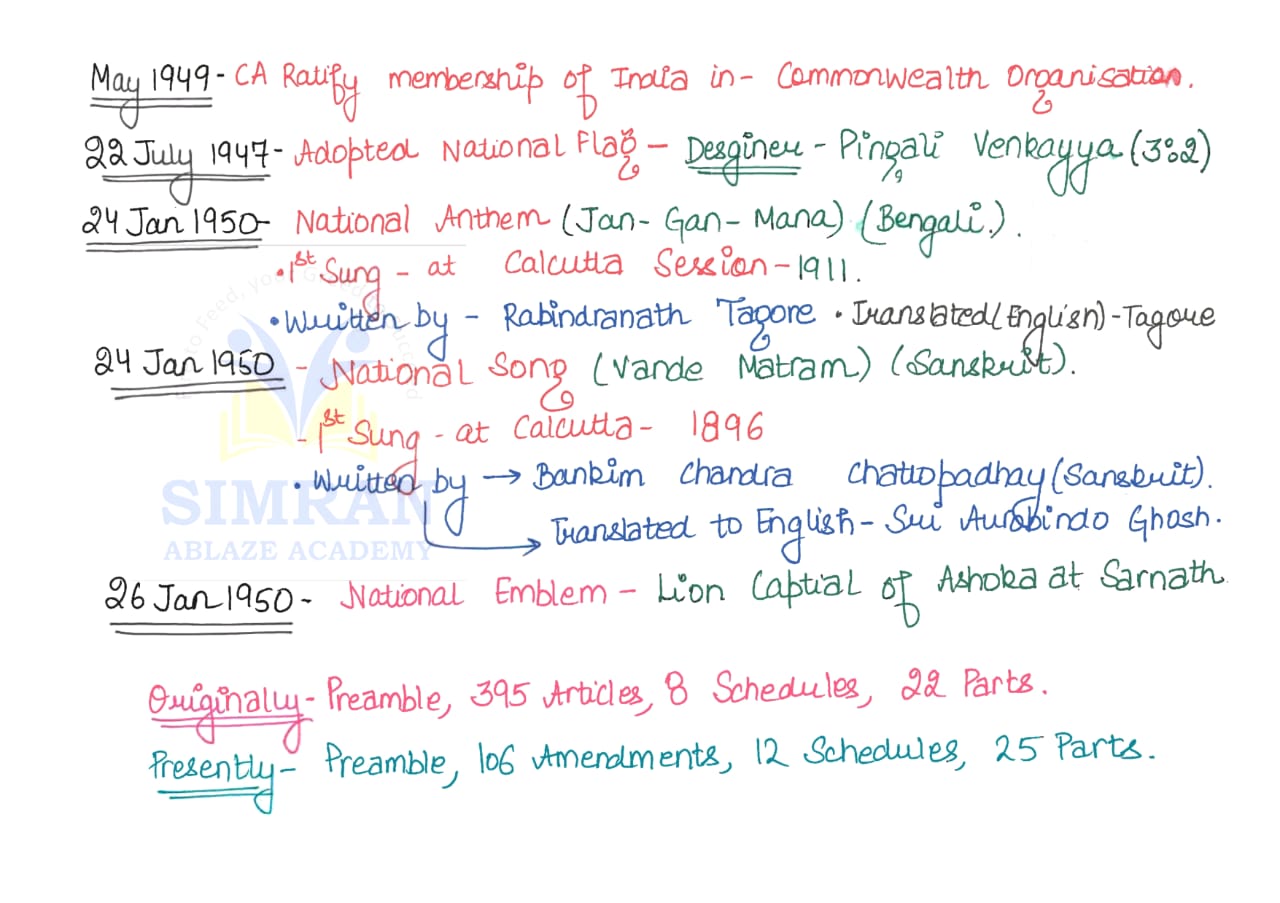 May 1949 - CA Ratify membership of India in - Commonwealth Organisation.
22 July 1947 - Adopted National Flag - Desginer - Pingali Venkayya (3:2)
24 Jan 1950 - National Anthem (Jan - Gan - Mana) (Bengali.).
• 1st Sung - at Calcutta Session - 1911.
• Written by - Rabindranath Tagore • Translated (English) - Tagore
24 Jan 1950 - National Song (Vande Matram) (Sanskrit).
- 1st Sung - at Calcutta - 1896
• Writted by → Bankim Chandra Chattopadhay (Sanskrit).
→ Translated to English - Sri Aurobindo Ghosh.
SIMRAN
ABLAZE ACADEMY
26 Jan 1950 - National Emblem - Lion Captial of Ashoka at Sarnath
Originally - Preamble, 395 Articles, 8 Schedules, 22 Parts.
Presently - Preamble, 106 Amendments, 12 Schedules, 25 Parts.